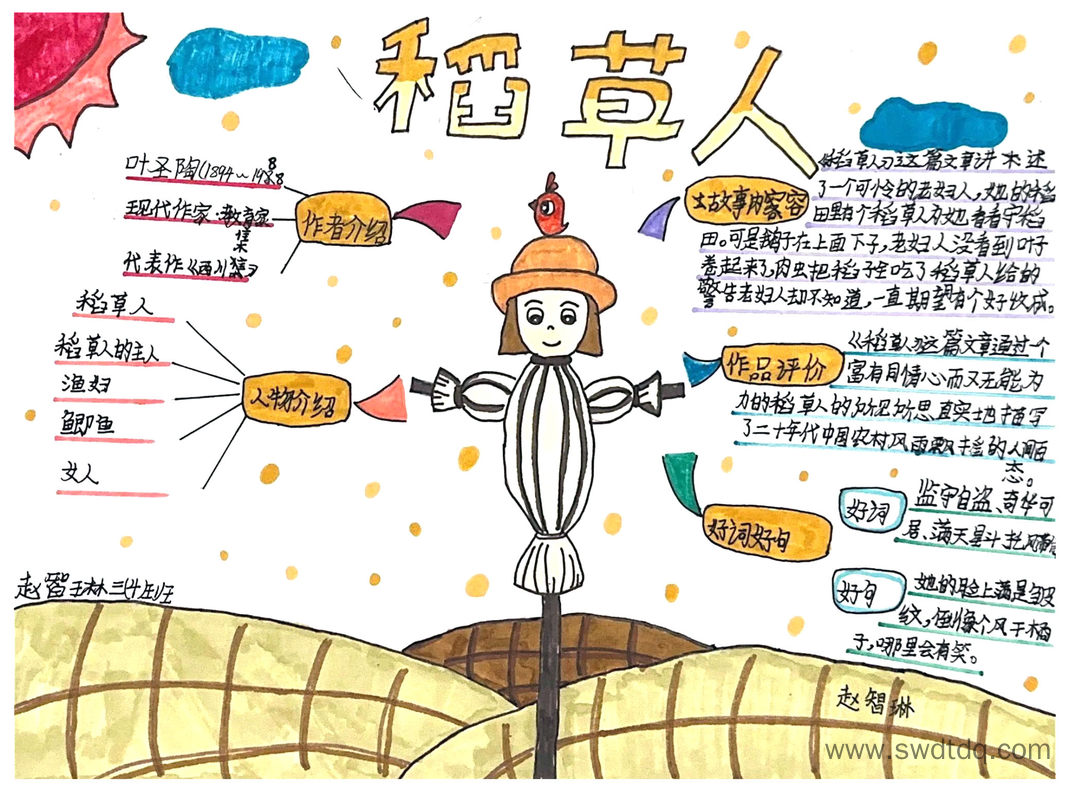 稻草人
叶圣陶(1894~1988
现代作家、教育家
代表作《西川集》
作者介绍
稻草人
稻草人的主人
渔妇
鲫鱼
女人
人物介绍
故事内容
《稻草人》这篇文章讲术述
了一个可怜的老妇人，她的稻
田里有个稻草人为她看守稻
田。可是蛾子在上面下子，老妇人没看到叶子
卷起来了，肉虫把稻子全吃了稻草人给的
警告老妇人却不知道，一直期望有个好收成。
作品评价
《稻草人》这篇文章通过一个
富有同情心而又无能为
力的稻草人的所见所思真实地描写
了二十年代中国农村风雨飘摇的人间百
态。
好词好句
好词
监守自盗、奇华可
居、满天星斗
好句
她的脸上满是皱
纹，倒像个风干橘
子，哪里会有笑。
赵智琳三
赵智琳
www.swdtdq.com